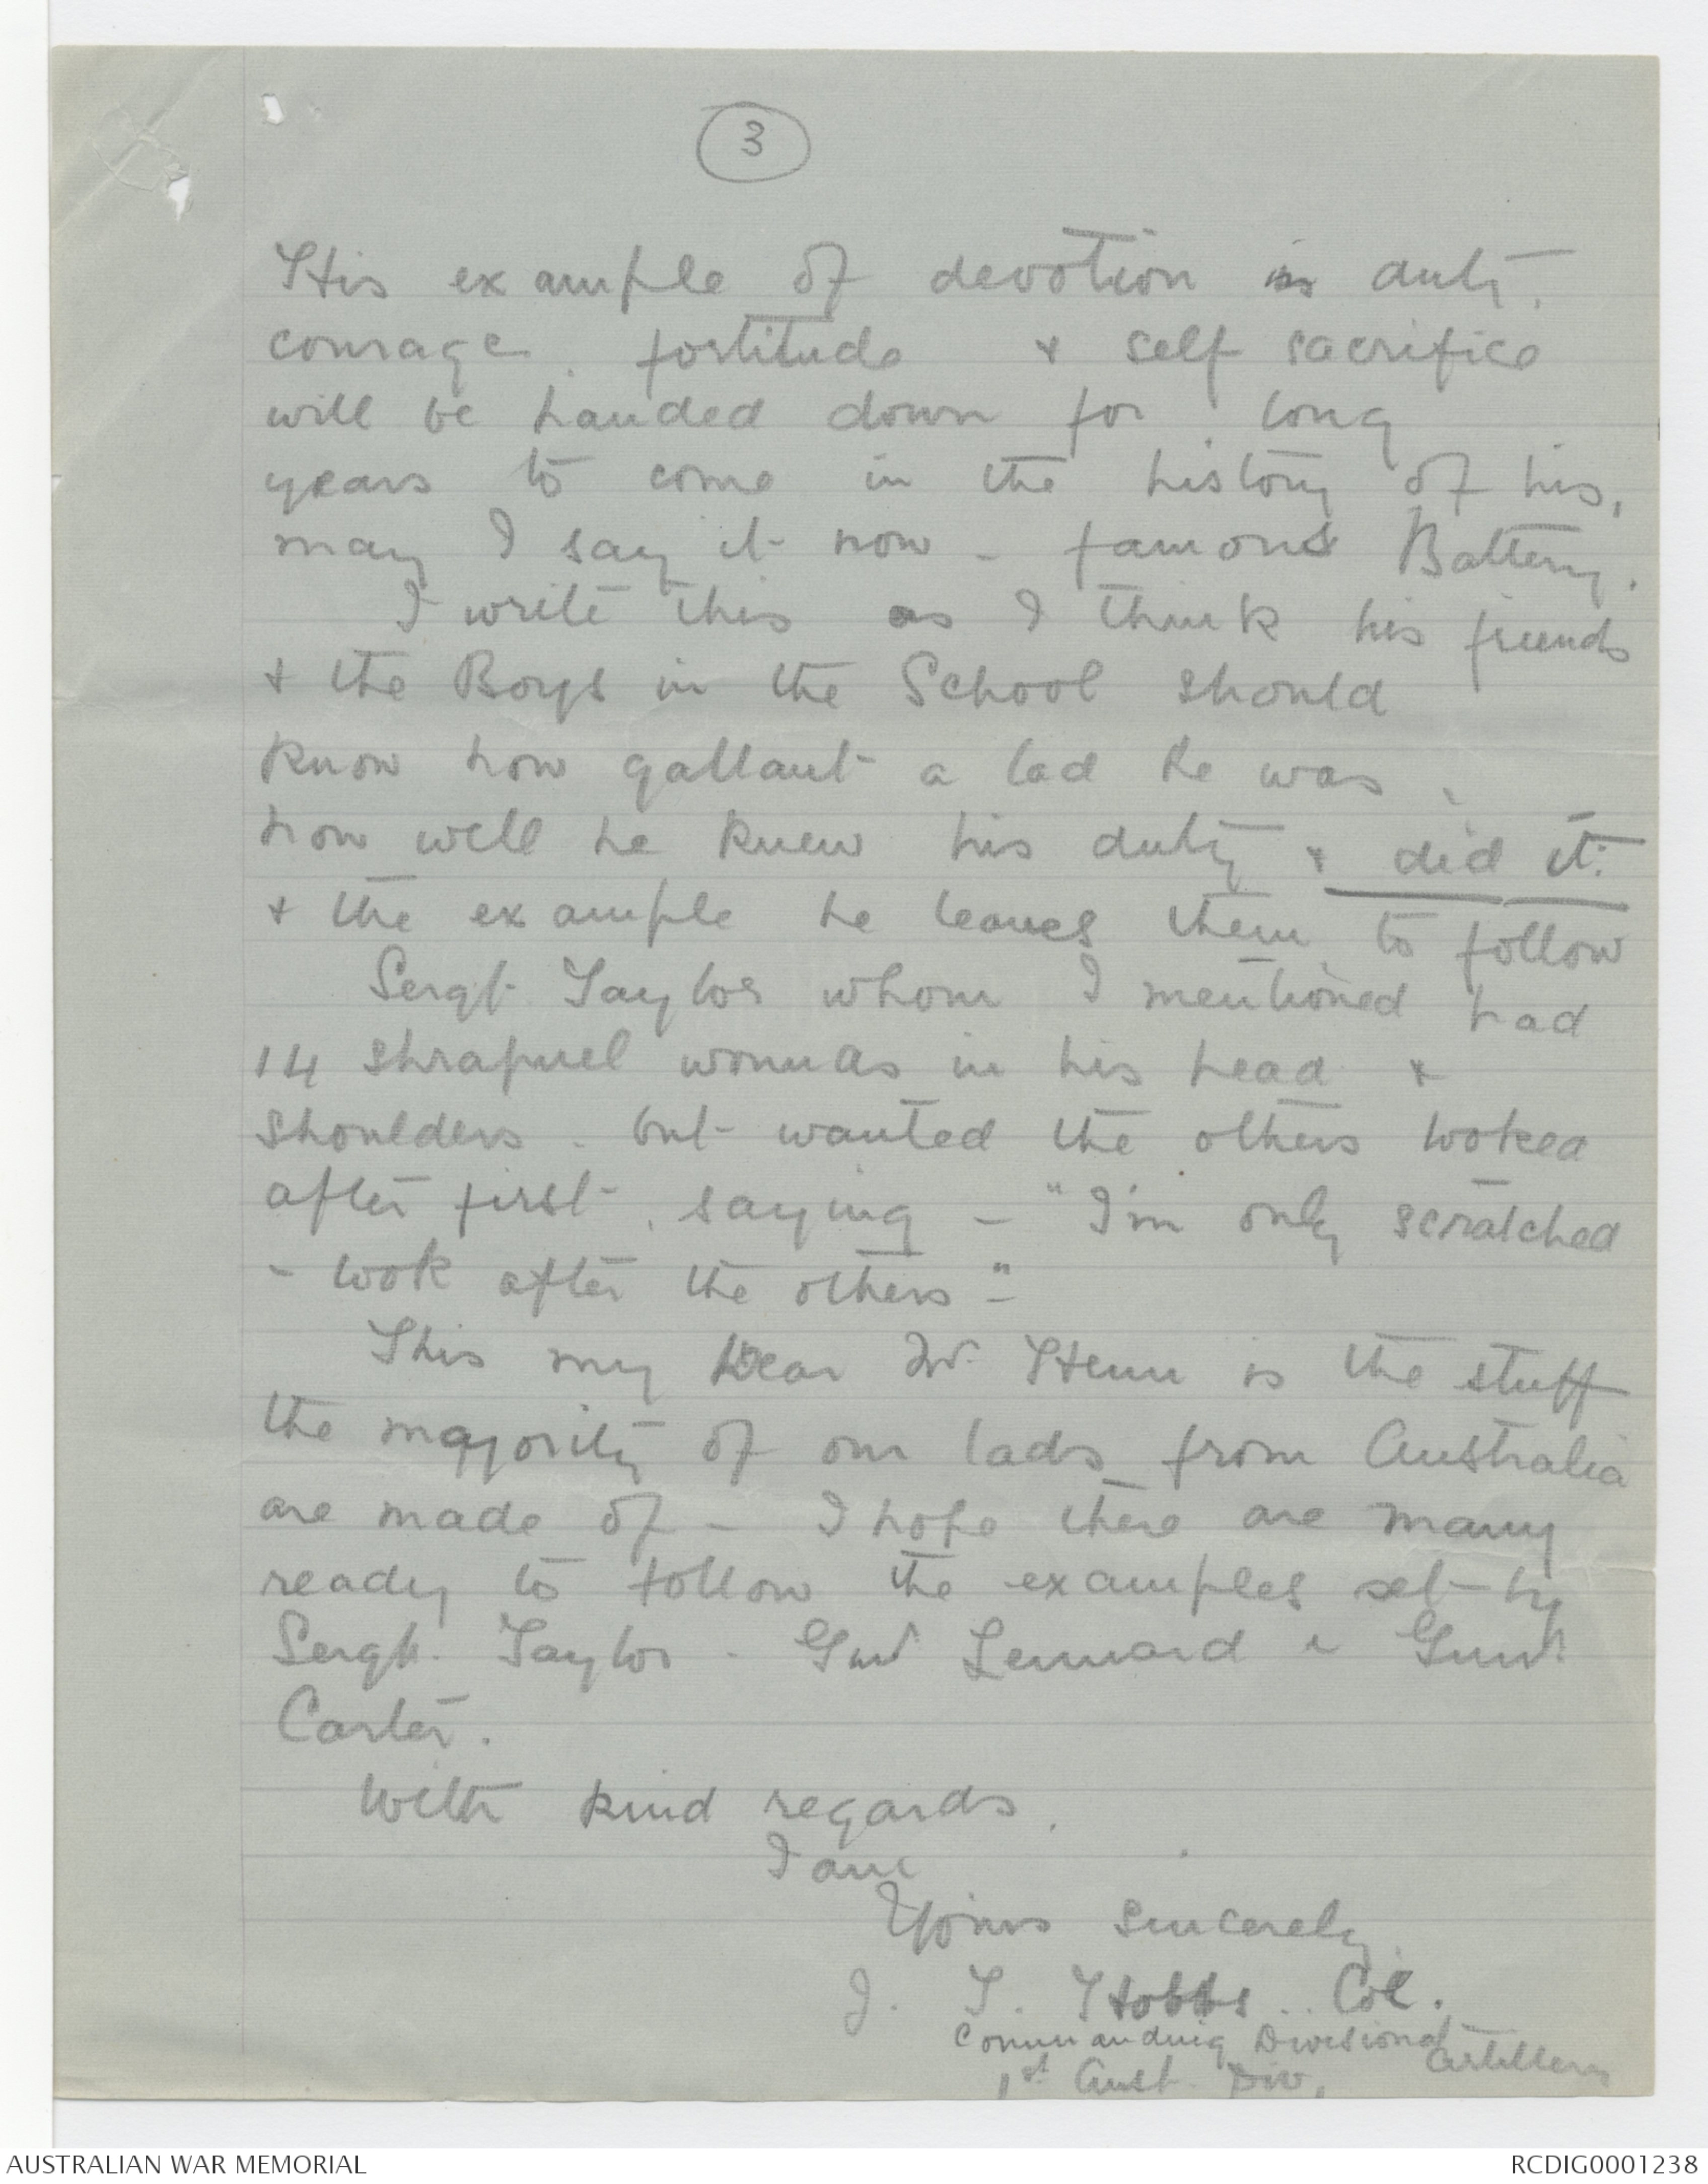 3
His example of devotion in duty,
courage, fortitude & self sacrifice
will be handed down for long
years to come in the history of his,
may I say it now - famous Battery.
I write this as I think his friends
& the Boys in the School should
know how gallant a lad he was,
how well he knew his duty & did it:
& the example he leaves them to follow
Sergt Taylor whom I mentioned had
14 shrapnel wounds in his head &
shoulders - but wanted the others looked
after first, saying - "I'm only scratched
- look after the others" -
This my Dear Mr. Henn is the stuff
the majority of our lads from Australia
are made of - I hope there are many
ready to follow the examples set by
Sergt. Taylor - Gnr Lennard & Gunr
Carter.
With kind regards,
I am
Yours sincerely,
J. T. Hobbs .. Col.
Commanding Divisional Artillery
1st Aust. Div.
AUSTRALIAN WAR MEMORIAL
RCDIG0001238